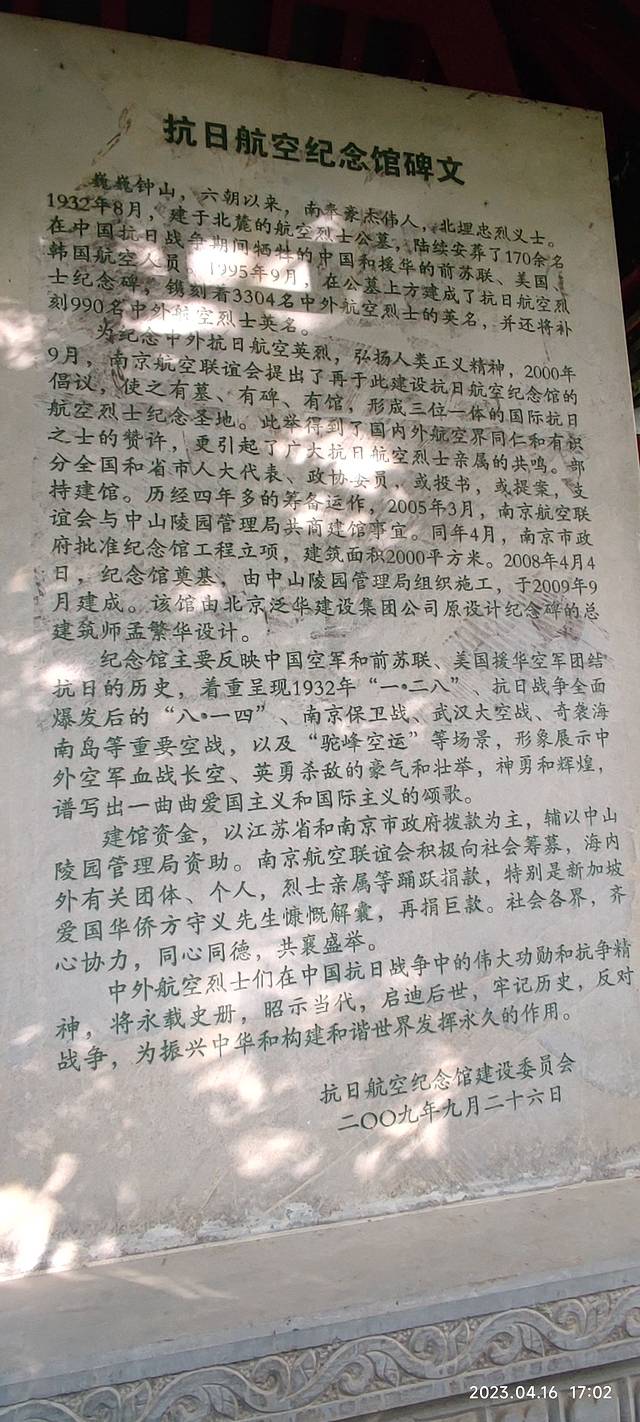 抗日航空纪念馆碑文
巍巍钟山，六朝以来，南奉豪杰伟人，北埋忠烈义士。
1932年8月，建于北麓的航空烈士公墓，陆续安葬了170余名
在中国抗日战争期间牺牲的中国和援华的前苏联、美国、
韩国航空人员。1995年9月，在公墓上方建成了抗日航空烈
士纪念碑，镌刻着3304名中外航空烈士的英名，并还将补
刻990名中外航空烈士英名。
为纪念中外抗日航空英烈，弘扬人类正义精神，2000年
9月，南京航空联谊会提出了再于此建设抗日航空纪念馆的
倡议，使之有墓、有碑、有馆，形成三位一体的国际抗日
航空烈士纪念圣地。此举得到了国内外航空界同仁和有识
之士的赞许，更引起了广大抗日航空烈士亲属的共鸣。部
分全国和省市人大代表、政协委员，或投书，或提案，支
持建馆。历经四年多的筹备运作，2005年3月，南京航空联
谊会与中山陵园管理局共商建馆事宜。同年4月，南京市政
府批准纪念馆工程立项，建筑面积2000平方米。2008年4月4
日，纪念馆奠基，由中山陵园管理局组织施工，于2009年9
月建成。该馆由北京泛华建设集团公司原设计纪念碑的总
建筑师孟繁华设计。
纪念馆主要反映中国空军和前苏联、美国援华空军团结
抗日的历史，着重呈现1932年“一•二八”、抗日战争全面
爆发后的“八•一四”、南京保卫战、武汉大空战、奇袭海
南岛等重要空战，以及“驼峰空运”等场景，形象展示中
外空军血战长空、英勇杀敌的豪气和壮举，神勇和辉煌，
谱写出一曲曲爱国主义和国际主义的颂歌。
建馆资金，以江苏省和南京市政府拨款为主，辅以中山
陵园管理局资助。南京航空联谊会积极向社会筹募，海内
外有关团体、个人，烈士亲属等踊跃捐款，特别是新加坡
爱国华侨方守义先生慷慨解囊，再捐巨款。社会各界，齐
心协力，同心同德，共襄盛举。
中外航空烈士们在中国抗日战争中的伟大功勋和抗争精
神，将永载史册，昭示当代，启迪后世，牢记历史，反对
战争，为振兴中华和构建和谐世界发挥永久的作用。
抗日航空纪念馆建设委员会
二〇〇九年九月二十六日
2023.04.16 17:02